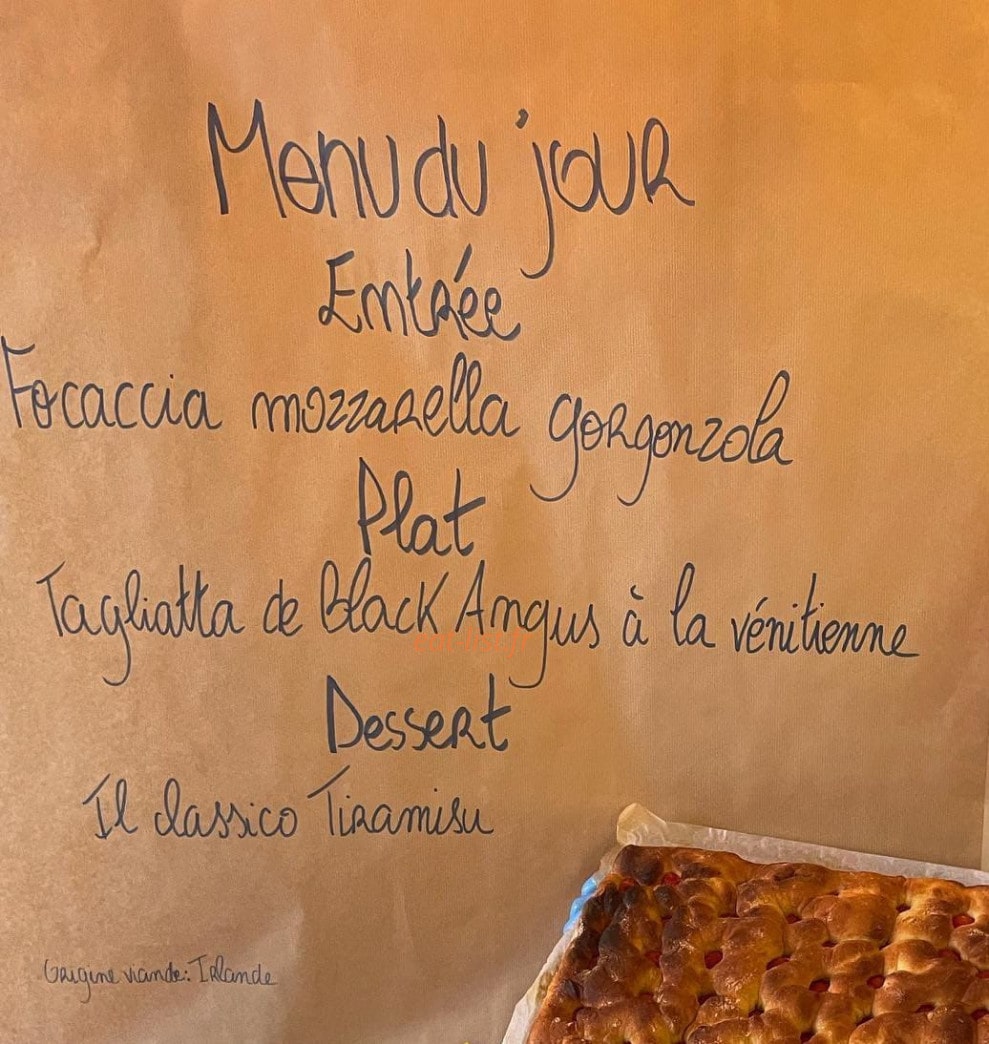 Menu du jour
Entrée
Focaccia mozzarella gorgonzola
Plat
Tagliatta de Black Angus à la vénitienne
Dessert
Il classico Tiramisu
Origine viande: Irlande